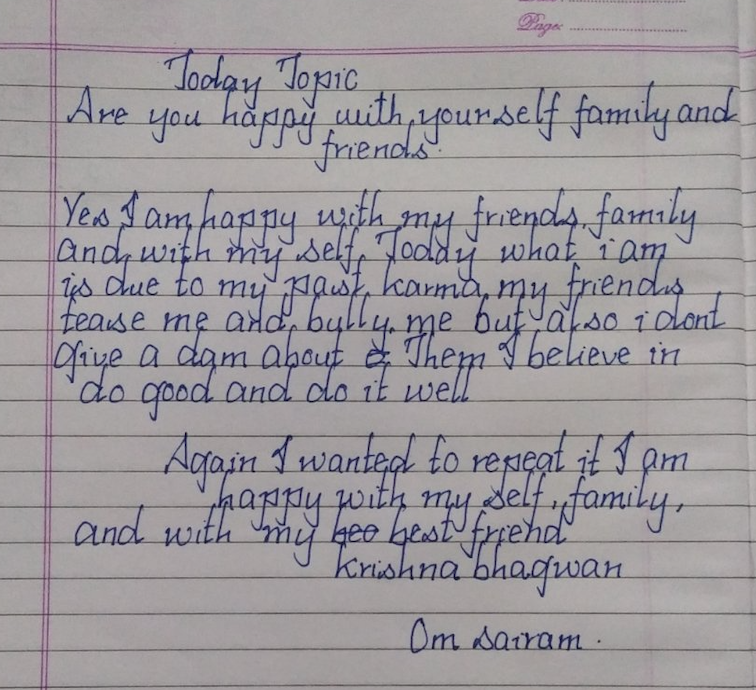 Page:
Today Topic
Are you happy with yourself family and
friends.
Yes I am happy with my friends, family
and with my self. Today what i am
is due to my past karma my friends
tease me and bully me but also i dont
give a dam about Them I believe in
do good and do it well
Again I wanted to repeat it I am
happy with my self, family,
and with my best friend
krishna bhagwan
Om sairam.